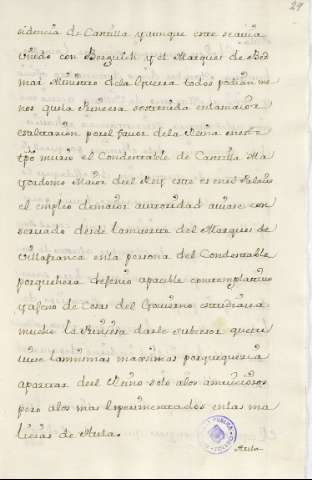 29
sidencia de Castilla y aunque este se avia
unido con Berguik y el Marques de Bed
mar Ministro dela Guerra todos podian me
nos que la Princesa sostenida enla maior
exaltacion por el favor dela Reina en este
tpo murio el Condestable de Castilla Ma
yordomo Maior del Rey este es en el Palacio
el empleo de maior autoridad aviase con
servado desde la muerte del Marques de
Villafranca enla persona del Condestable
porque hera de Genio apacible contemplativo
y ageno de Cosas del Govierno estudiava
mucho la Princesa darle subcesor que tu
viese las mismas maximas porque queria
apartar del Reino no solo a los ambiciosos
pero a los mas experimentados en las ma
licias de Aula.
Aula